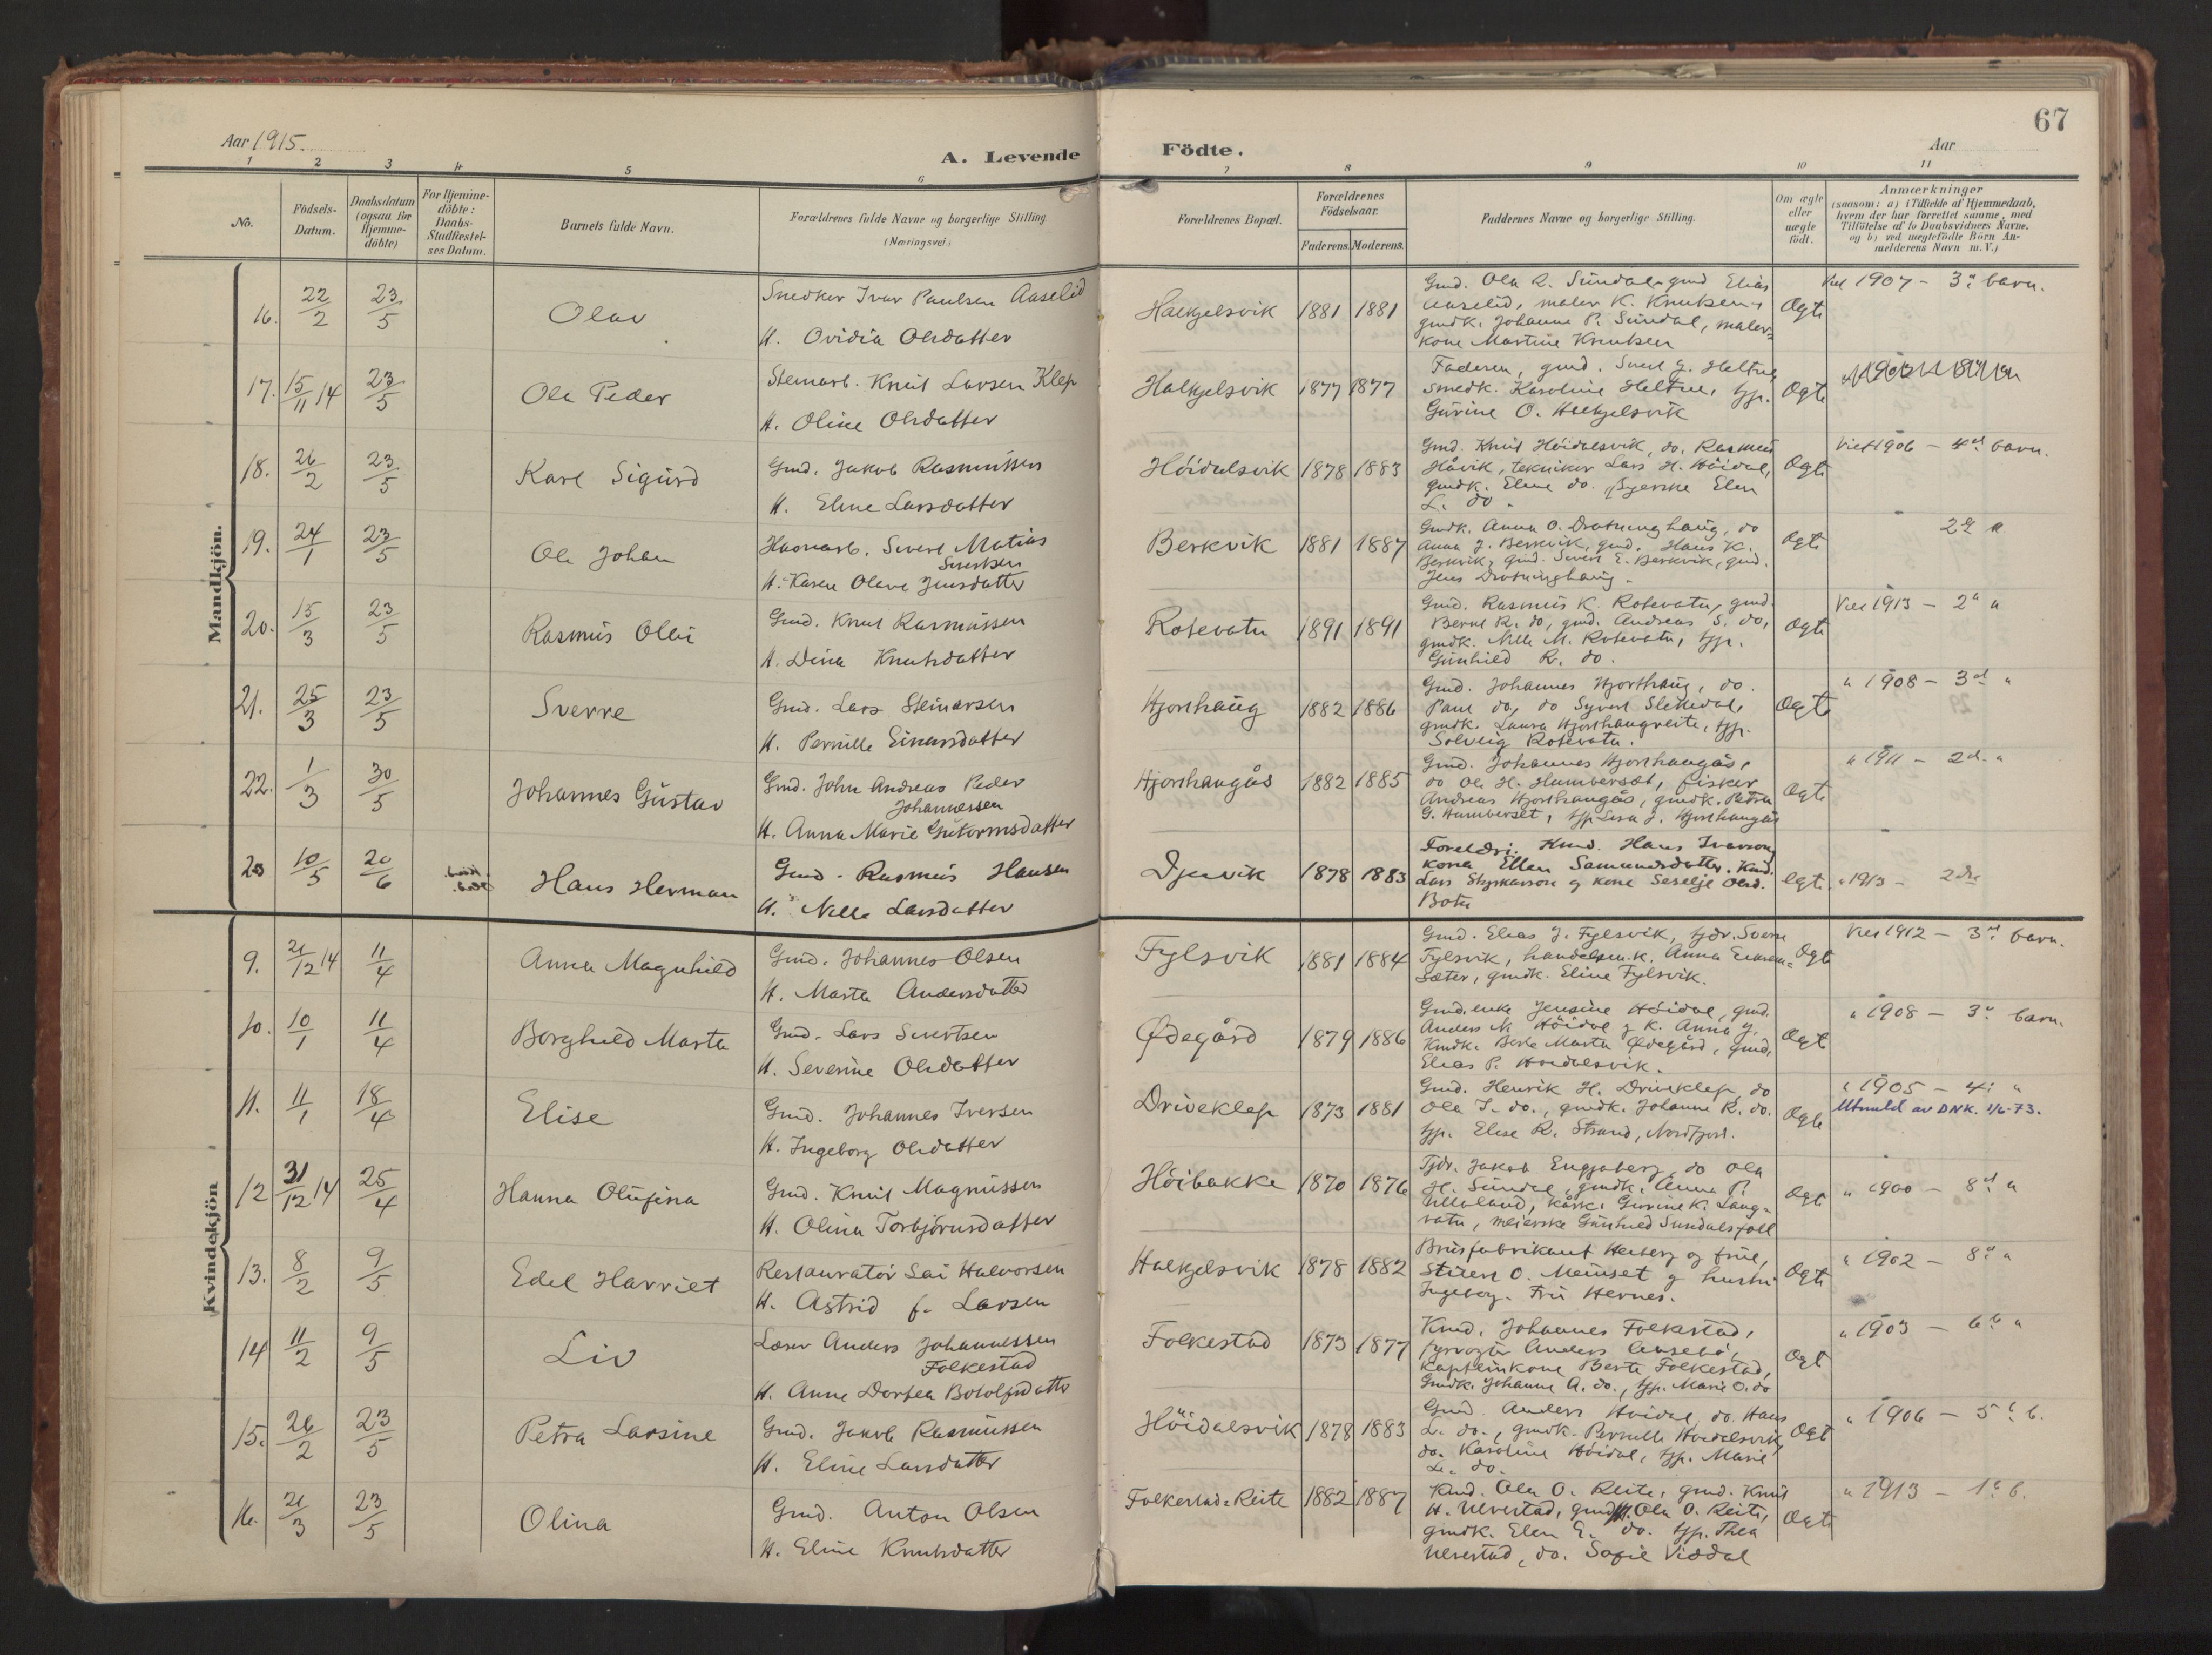 67
Aar 1915.
A. Levende Födte.
Aar
1 2 3 4 5 6 7 8 9 10 11
No.
Födsels-Datum.
Daabsdatum (ogsaa for Hjemme-döbte)
For Hjemme-döbte: Daabs-Stadfæstel-ses Datum.
Barnets fulde Navn.
Forældrenes fulde Navne og borgerlige Stilling (Næringsvei.)
Forældrenes Bopæl.
Forældrenes Födselsaar.
Faderens. Moderens.
Faddernes Navne og borgerlige Stilling.
Om ægte eller uægte födt.
Anmærkninger
(saasom: a) i Tilfælde af Hjemmedaab, hvem der har forrettet samme, med Tilföielse af to Daabsvidners Navne, og b) ved uægtefödte Börn An-melderens Navn m. V.)
Mandkjön.
16. 22/2 23/5 Olav
Snedker Ivar Paulsen Aaselid
H. Ovidia Olsdatter
1881 1881
Gmd. Ola R. Sundal, gmd Elias
Aaselid, maler K. Knutsen,
gmdk. Johanne P. Sundal, maler=
kone Martine Knutsen
Ogte
1907 - 3. barn.
17. 15/11 14 23/5 Ola Peder
Stemarb. Knut Larsen Klep
H. Oline Olsdatter
Halkjelsvik 1877 1877
Faderen, gmd. Sivert J. Heltne,
smedk. Karoline Heltne, tjp.
Gurine O. Halkjelsvik
Ogte
18. 26/2 23/5 Karl Sigurd
Gmd. Jakob Rasmussen
H. Eline Larsdatter
Höidalsvik 1878 1883
Gmd. Knut Höidalsvik, do. Rasmus
Håvik, tekniker Lars H. Höidal,
gmdk. Eline do. Syerske Elen
L. do.
Ogte
Viet 1906 - 4d barn.
19. 24/1 23/5 Ole Johan
Sivert Matias
Sivertsen
H. Karen Olave Jensdatter
Berkvik 1881 1887
Gmdk. Anna O. Drotninghaug, do
Anna J. Berkvik, gmd. Hans K.
Berkvik, Gmd. Sivert E. Berkvik, gmd.
Jens Drotninghaug.
Ogte
20. 15/3 23/5 Rasmus Olai
Gmd. Knut Rasmussen
H. Dina Knutsdatter
Rotevatn 1891 1891
Gmd. Rasmus K. Rotevatn, gmd.
Bernt R. do, gmd. Andreas S. do,
gmdk. Nille M. Rotevatn, tjp.
Gunhild R. do.
Ogte
Viet 1913 - 2
21. 25/3 23/5 Sverre
Gmd. Lars Steinarsen
H. Pernille Einarsdatter
Hjorthaug 1882 1886
Gmd. Johannes Hjorthaug, do.
Paul do, do Syvert Slettedal,
gmdk. Laura Hjorthaugreite, tjp.
Solveig Rotevatn.
Ogte
" 1908 - 3d "
22. 1/3 30/5 Johannes Gustav
Gmd. John Andreas Peder
Johannessen
H. Anna Marie Gutormsdatter
Hjorthaugås 1882 1885
Gmd. Johannes Hjorthaugås,
do Ole H. Humberset, fisker
Andreas Hjorthaugås, gmdk. Petra
G. Humberset, tjp. Lisa J. Hjorthaugås
Ogte
" 1911 - 2d. "
23 10/5 20/6 Hans Herman
Gmd. Rasmus Hansen
H. Nille Larsdatter
Djuvik 1878 1883
Foreldri. Kmd. Hans Iverson,
kona Ellen Samundsdatter. Kmd.
Lars Styrkarson og kone Seselje Olsd.
Botn
egte
" 1913 -
Kvindekjön
9. 21/12 14 11/4 Anna Magnhild
Gmd. Johannes Olsen
H. Marta Andersdatter
Fylsvik 1881 1884
Gmd. Elias J. Fylsvik, tjdr. Sverre
Fylsvik, handelsm.k. Anna Eikrem=
sæter, gmdk. Eline Fylsvik.
Ogte
Viet 1912 - 3. barn.
10. 10/1 11/4 Borghild Marta
Gmd. Lars Sivertsen
H. Severine Olsdatter
Ødegård 1879 1886
Gmd.enke Jensine Höidal, gmd.
Anders N. Höidal og k. Anna J.
Kmdk. Berte Marta Ødegård, gmd.
Elias P. Hoidalsvik.
Ogte
" 1908 - 3. barn.
11. 11/1 18/4 Elise
Gmd. Johannes Iversen
H. Ingeborg Olsdatter
Driveklep 1873 1881
Gmd. Henrik H. Driveklep, do
Ola I. do., gmdk. Johanne R. do.
tjp. Elise R. Strand, Nordfjord.
Ogte
" 1905 - 4. "
Utmeld av DNK. 1/6-73.
12 31/12 14 25/4 Hanna Olufina
Gmd. Knut Magnussen
H. Olina Torbjörnsdatter
Höibakke 1870 1876
Tjdr. Jakob Engjaberg, do Ola
H. Sundal, gmdk. Anna P.
Ulleland, kårk. Gurine K. Lang=
vatn, meierske Gunhild Sundalsfoll
Ogte
" 1900 - 8d "
13. 8/2 9/5 Edel Harriet
Restauratör Sai Halvorsen
H. Astrid f. Larsen
Halkjelsvik 1878 1882
Brusfabrikant Herberg og frue,
O. Meinset og hustru
Ingeborg. Fru Hernes.
Ogte
" 1902 - 8d "
14 11/2 9/5 Liv
Lærer Anders Johannessen
Folkestad
H. Anne Dortea Botolfsdatter
Folkestad 1873 1877
Kmd. Johannes Folkestad,
fyrvogter Anders Aasebö,
kapteinkone Berte Folkestad,
Gmdk. Johanne A. do., tjp. Marie O. do
Ogt
" 1903 - 6te "
15. 26/2 23/5 Petra Larsine
Gmd. Jakob Rasmussen
H. Eline Larsdatter
Höidalsvik 1878 1883
Gmd. Anders Hoidal, do. Hans
L. do., gmdk. Pernille Hoidalsvik,
do. Karoline Höidal, tjp. Marie
L. do.
Ogt
" 1906 - 5te b.
16. 21/3 23/5 Olina
Gmd. Anton Olsen
H. Eline Knutsdatter
Folkestad=Reite 1882 1887
Kmd. Ola O. Reite, gmd. Knut
H. Ulvestad, gmd. Ola O. Reite,
gmdk. Elen E. do. tjp. Thea
Ulvestad, do. Sofie Viddal
Ogte
" 1913 - 1te b.